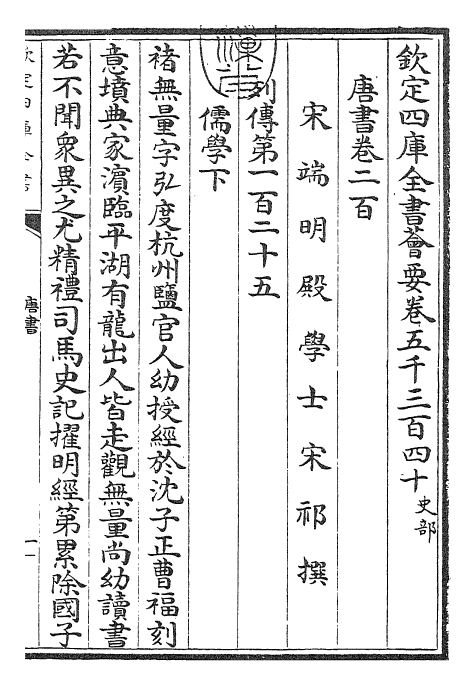 欽定四庫全書薈要卷五千三百四十史部
唐書卷二百
宋端明殿學士宋祁撰
列傳第一百二十五
儒學下
褚無量字弘度杭州鹽官人幼授經於沈子正曹福刻
意墳典家濵臨平湖有龍出人皆走觀無量尚幼讀書
若不聞衆異之尤精禮司馬史記擢明經第累除國子
欽定四庫全書
唐書
一